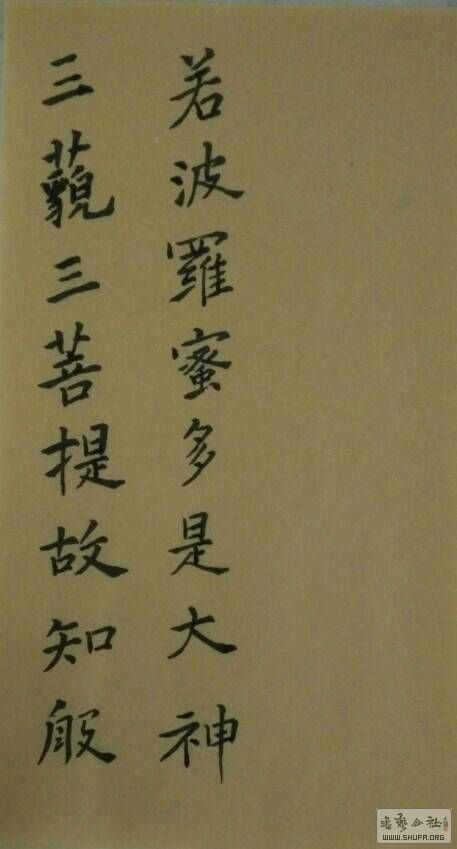 三藐三菩提故知般
若波羅蜜多是大神
書藝公社
WWW.SHUFA.ORG